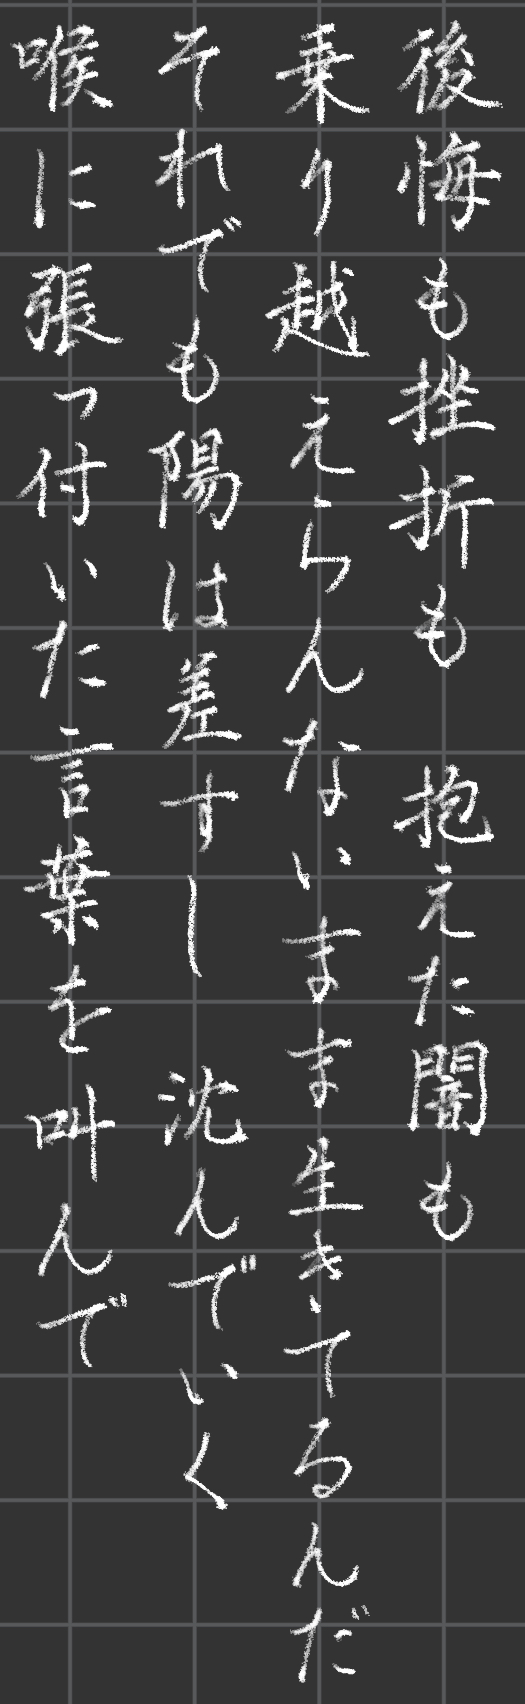 後悔も挫折も 抱えた闇も
乗り越えらんないまま生きてるんだ
それでも陽は差すし 沈んでいく
喉に張っ付いた言葉を叫んで